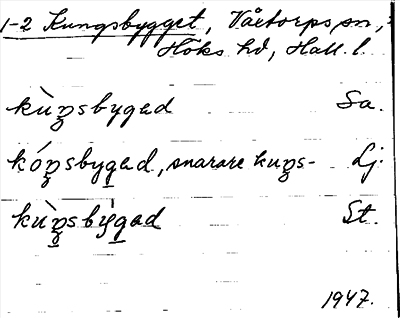 1-2 Kungsbygget, Vårtorps sn,
Höks hd, Hall. l.
kùŋsbygəd Sa.
kóŋsbygəd, snarare kuŋs- Lj.
kùŋsbygəd St.
1947.